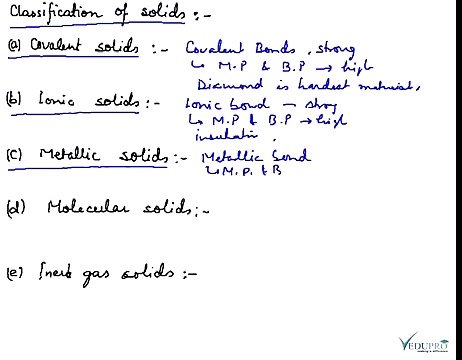 Classification of solids :-
(a) Covalent solids :- Covalent Bonds, strong
↳ M.P & B.P → high
Diamond is hardest material.
(b) Ionic solids :- Ionic bond - strong
↳ M.P & B.P → high
insulatin.
(c) Metallic solids :- Metallic bond
↳ M.P. & B
(d) Molecular solids :-
(e) Inert gas solids :-
VEDUPRO